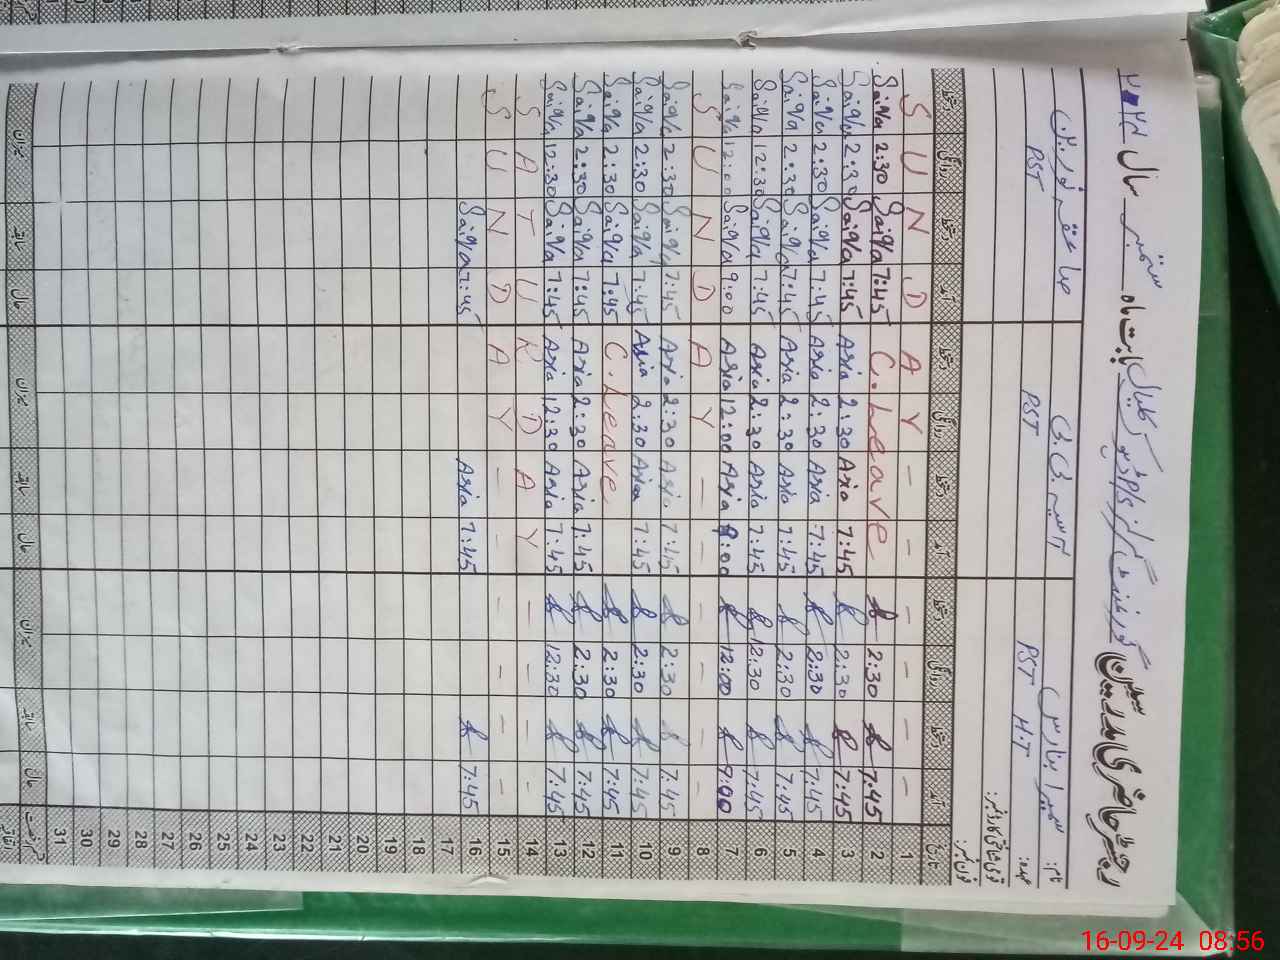 رجسٹر حاضری مدرسین گورنمنٹ گرلز بابت ماہ ستمبر سال ۲۰۲۴
نام: سمیرا
عہدہ: PST H.T PST PST
قومی شناختی کارڈ نمبر:
فون نمبر:
تاریخ آمد دستخط روانگی دستخط آمد دستخط روانگی دستخط آمد دستخط روانگی دستخط
1 - - - - - - Y A D N U S
2 7:45 2:30 C.Leave 7:45 Saiqa 2:30 Saiqa
3 7:45 2:30 7:45 Asia 2:30 Asia 7:45 Saiqa 2:30 Saiqa
4 7:45 2:30 7:45 Asia 2:30 Asia 7:45 Saiqa 2:30 Saiqa
5 7:45 2:30 7:45 Asia 2:30 Asia 7:45 Saiqa 2:30 Saiqa
6 7:45 12:30 7:45 Asia 2:30 Asia 7:45 Saiqa 12:30 Saiqa
7 9:00 12:00 9:00 Asia 12:00 Asia 9:00 Saiqa 12:00 Saiqa
8 - - - - - - Y A D N U S
9 7:45 2:30 7:45 Asia 2:30 Asia 7:45 Saiqa 2:30 Saiqa
10 7:45 2:30 7:45 Asia 2:30 Asia 7:45 Saiqa 2:30 Saiqa
11 7:45 2:30 C.Leave 7:45 Saiqa 2:30 Saiqa
12 7:45 2:30 7:45 Asia 2:30 Asia 7:45 Saiqa 2:30 Saiqa
13 7:45 12:30 7:45 Asia 12:30 Asia 7:45 Saiqa 12:30 Saiqa
14 - - - - Y A D R U T A S
15 - - - - - - Y A D N U S
16 7:45 7:45 Asia 7:45 Saiqa
17
18
19
20
21
22
23
24
25
26
27
28
29
30
31
حال سابقہ میزان حال سابقہ میزان حال سابقہ میزان
16-09-24 08:56